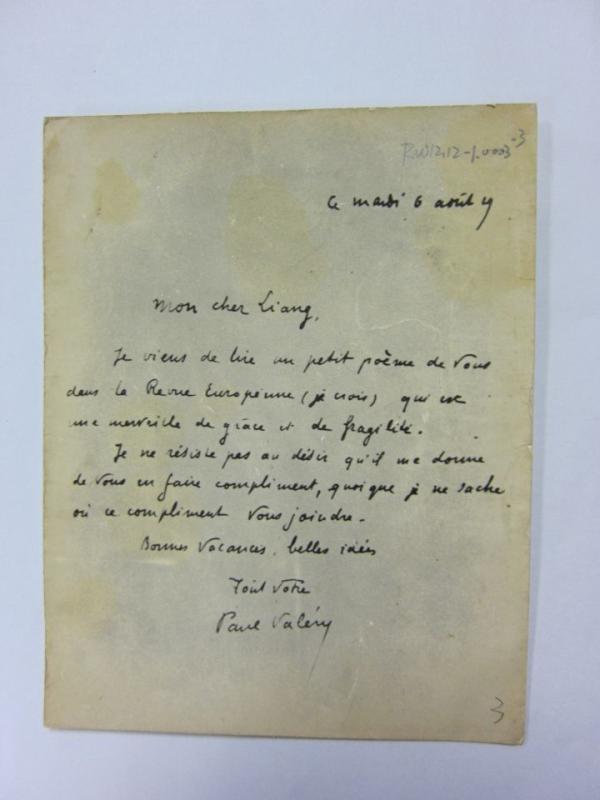 RW12.12-1.0003-3
Ce mardi 6 août 29
Mon cher Liang,
Je viens de lire un petit poème de vous
dans la Revue Européenne (je crois) qui est
une merveille de grâce et de fragilité.
Je ne résiste pas au désir qu'il me donne
de vous en faire compliment, quoique je ne sache
où ce compliment vous joindre.
Bonnes vacances, belles idées
Tout votre
Paul Valéry
3